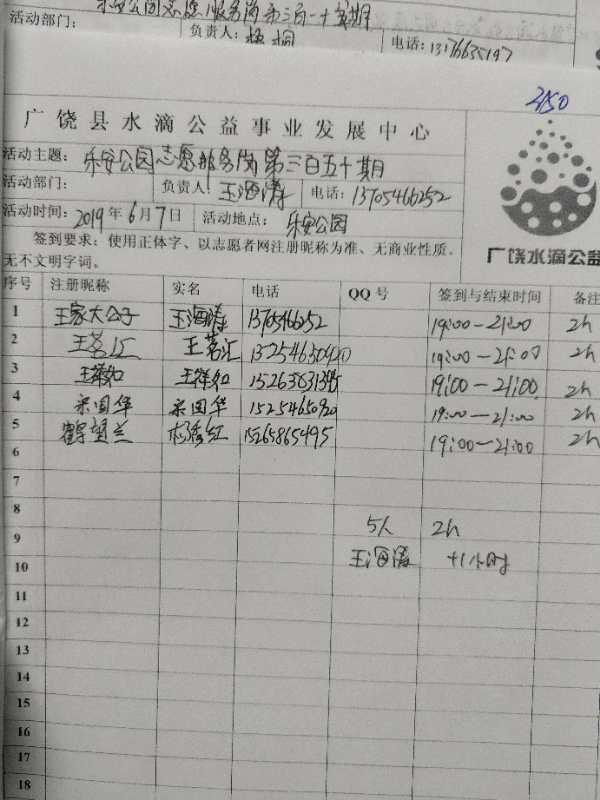 乐安公园志愿服务岗第三百一十五期
活动部门： 负责人：杨桐 电话：13176635197
2150
广饶县水滴公益事业发展中心
活动主题： 乐安公园志愿服务岗第三百五十期
活动部门： 负责人：王海涛 电话：13705466252
活动时间：2019年6月7日 活动地点： 乐安公园
签到要求：使用正体字、以志愿者网注册昵称为准、无商业性质、
无不文明字词。
广饶水滴公益
序号 注册昵称 实名 电话 QQ号 签到与结束时间 备注
1 王家大公子 王海涛 13705466252 19:00—21:00 2h
2 王茗汇 王茗汇 19:00—21:00 2h
3 王祥如 王祥如 19:00—21:00 2h
4 宋国华 宋国华 15254650920 19:00—21:00 2h
5 鹤望兰 杨秀红 15265865495 19:00—21:00 2h
6
7
8 5人 2h
9
10 王海涛 +1小时
11
12
13
14
15
16
17
18